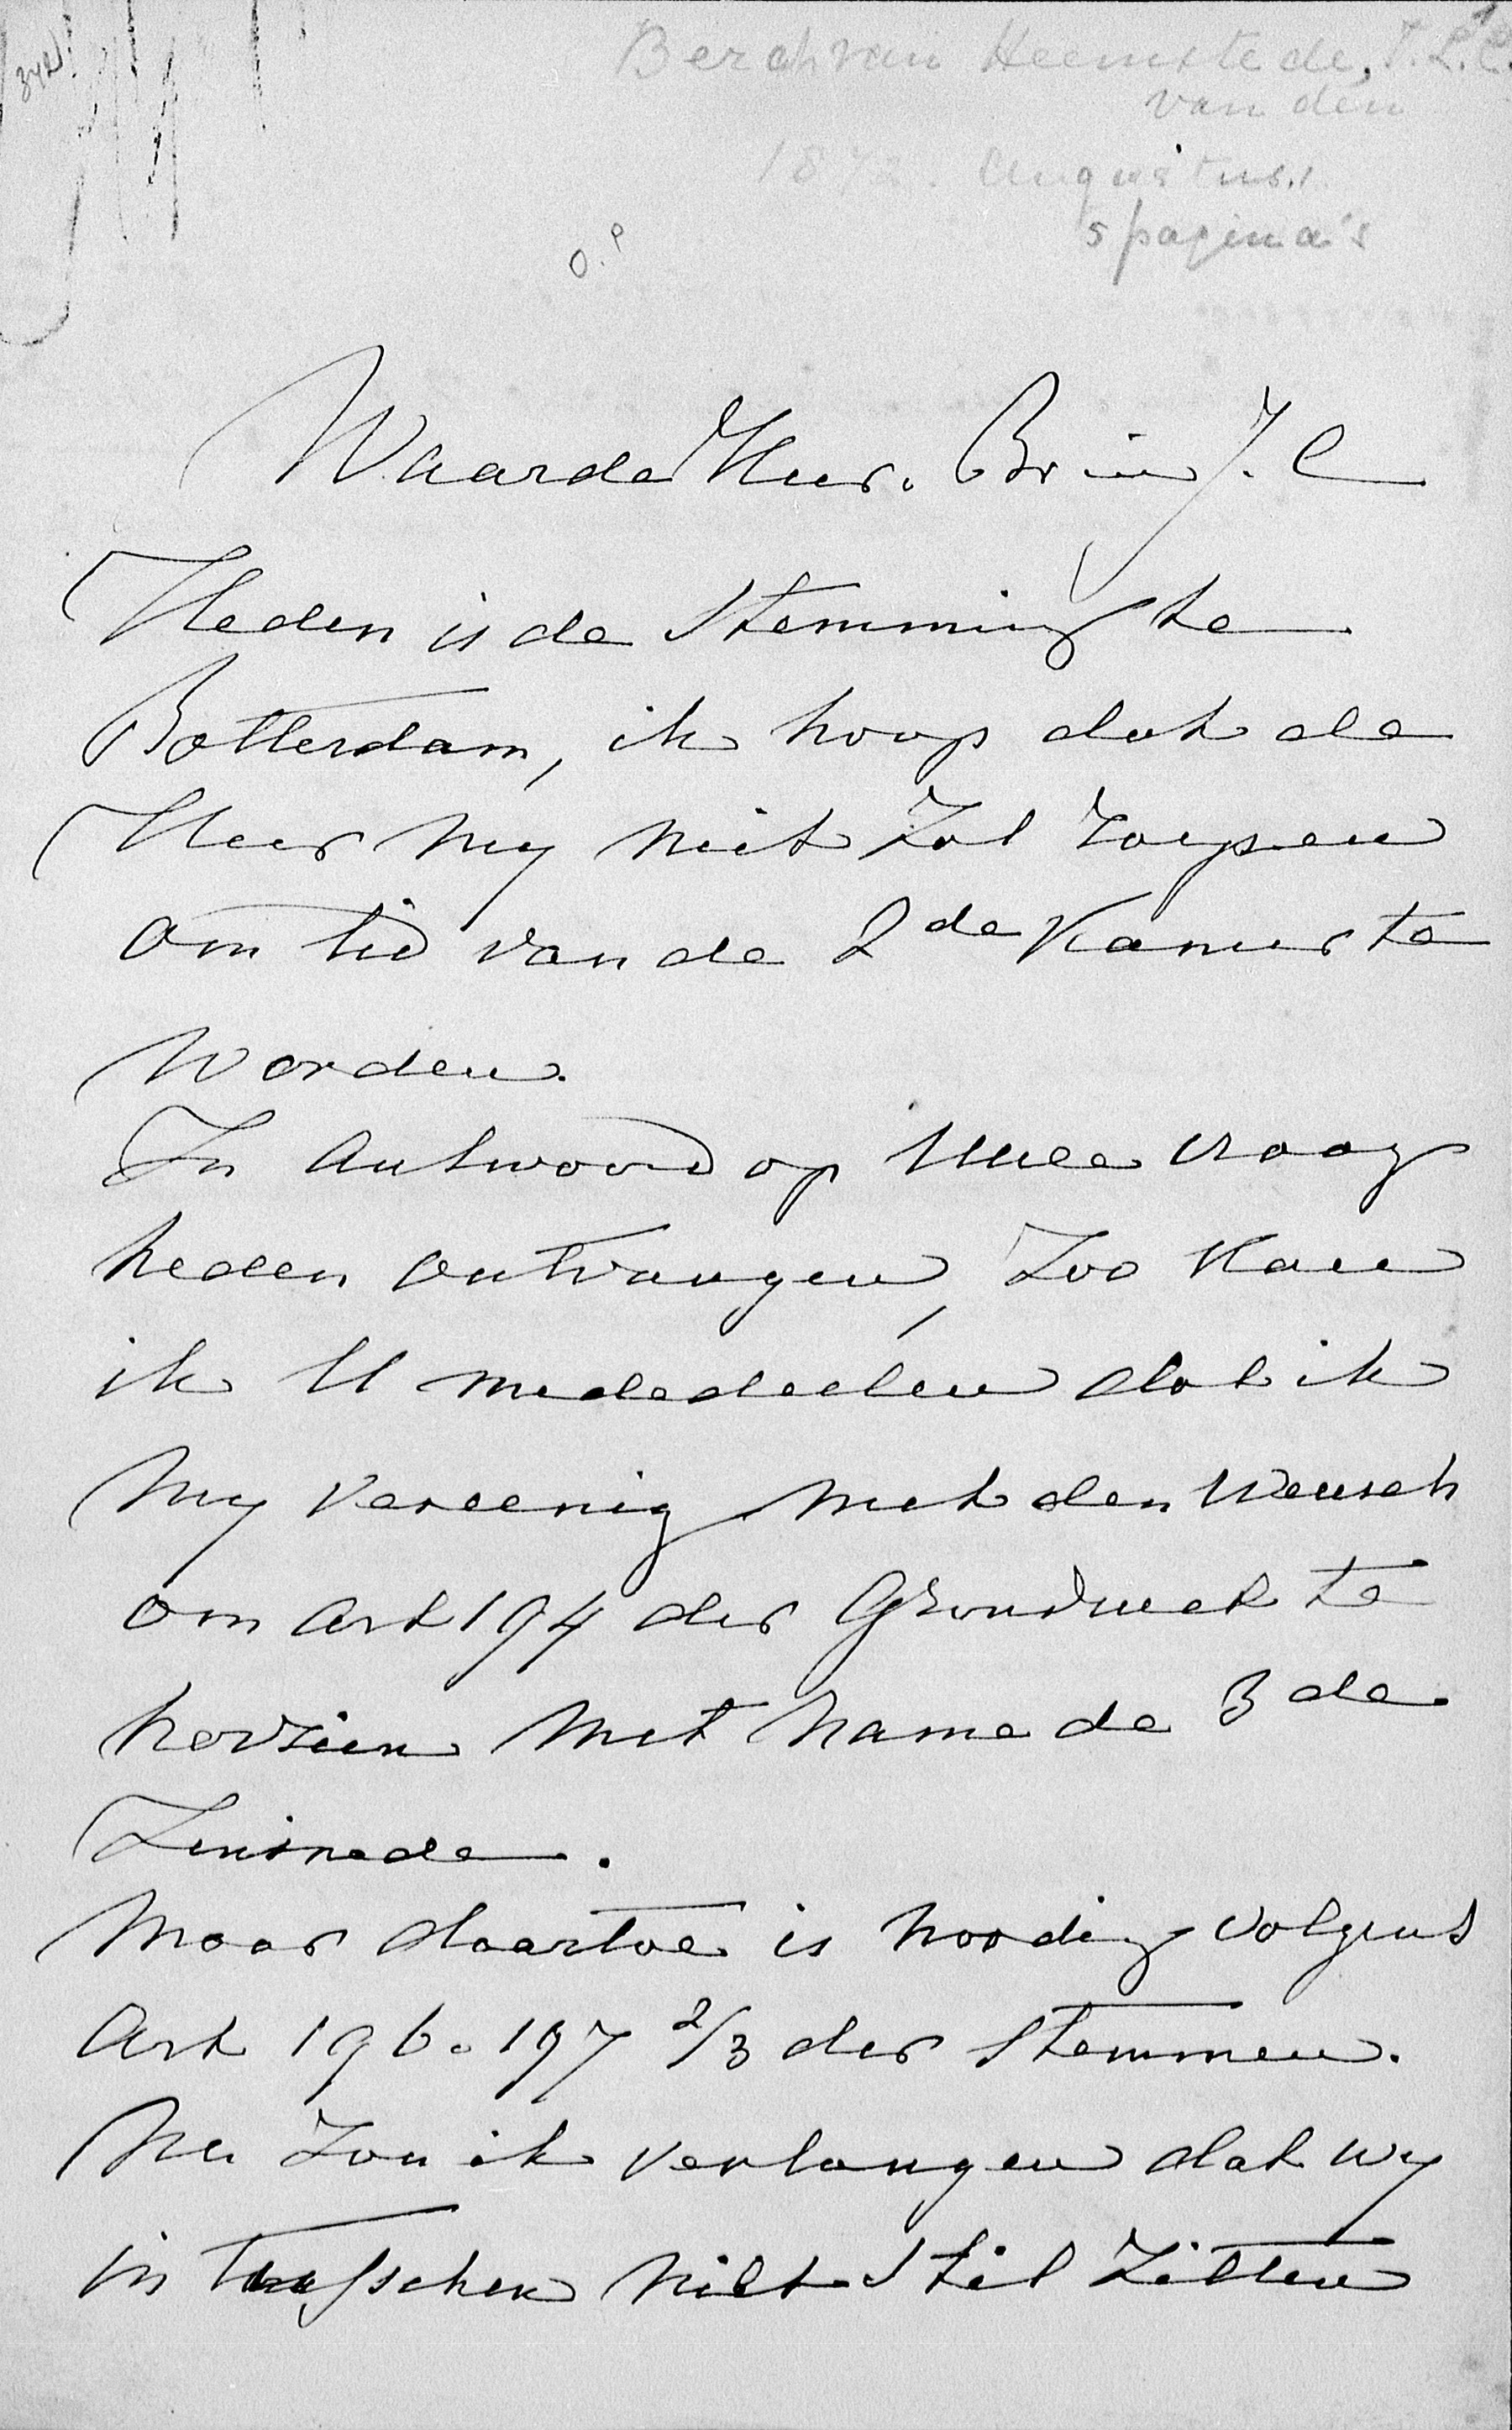 Berch van Heemstede, J.L.C.
van den
1872. Augustus.1.
5 pagina's
Waarde Heer. Br in J. C
Heden is de Stemming te
Rotterdam, ik hoop dat de
Heer my niet zal roepen
om lid van de 2de Kamer te
worden.
In antwoord op Uwe vraag
heden ontvangen, Zoo kan
ik U mededeelen dat ik
my vereenig met den wensch
om art 194 der Grondwet te
herzien met name de 3de
Zinsnede.
Maar daartoe is noodig volgens
Art 196. 197 2/3 der stemmen.
Nu Zou ik verlangen dat wy
in tusschen niet Stil Zitten